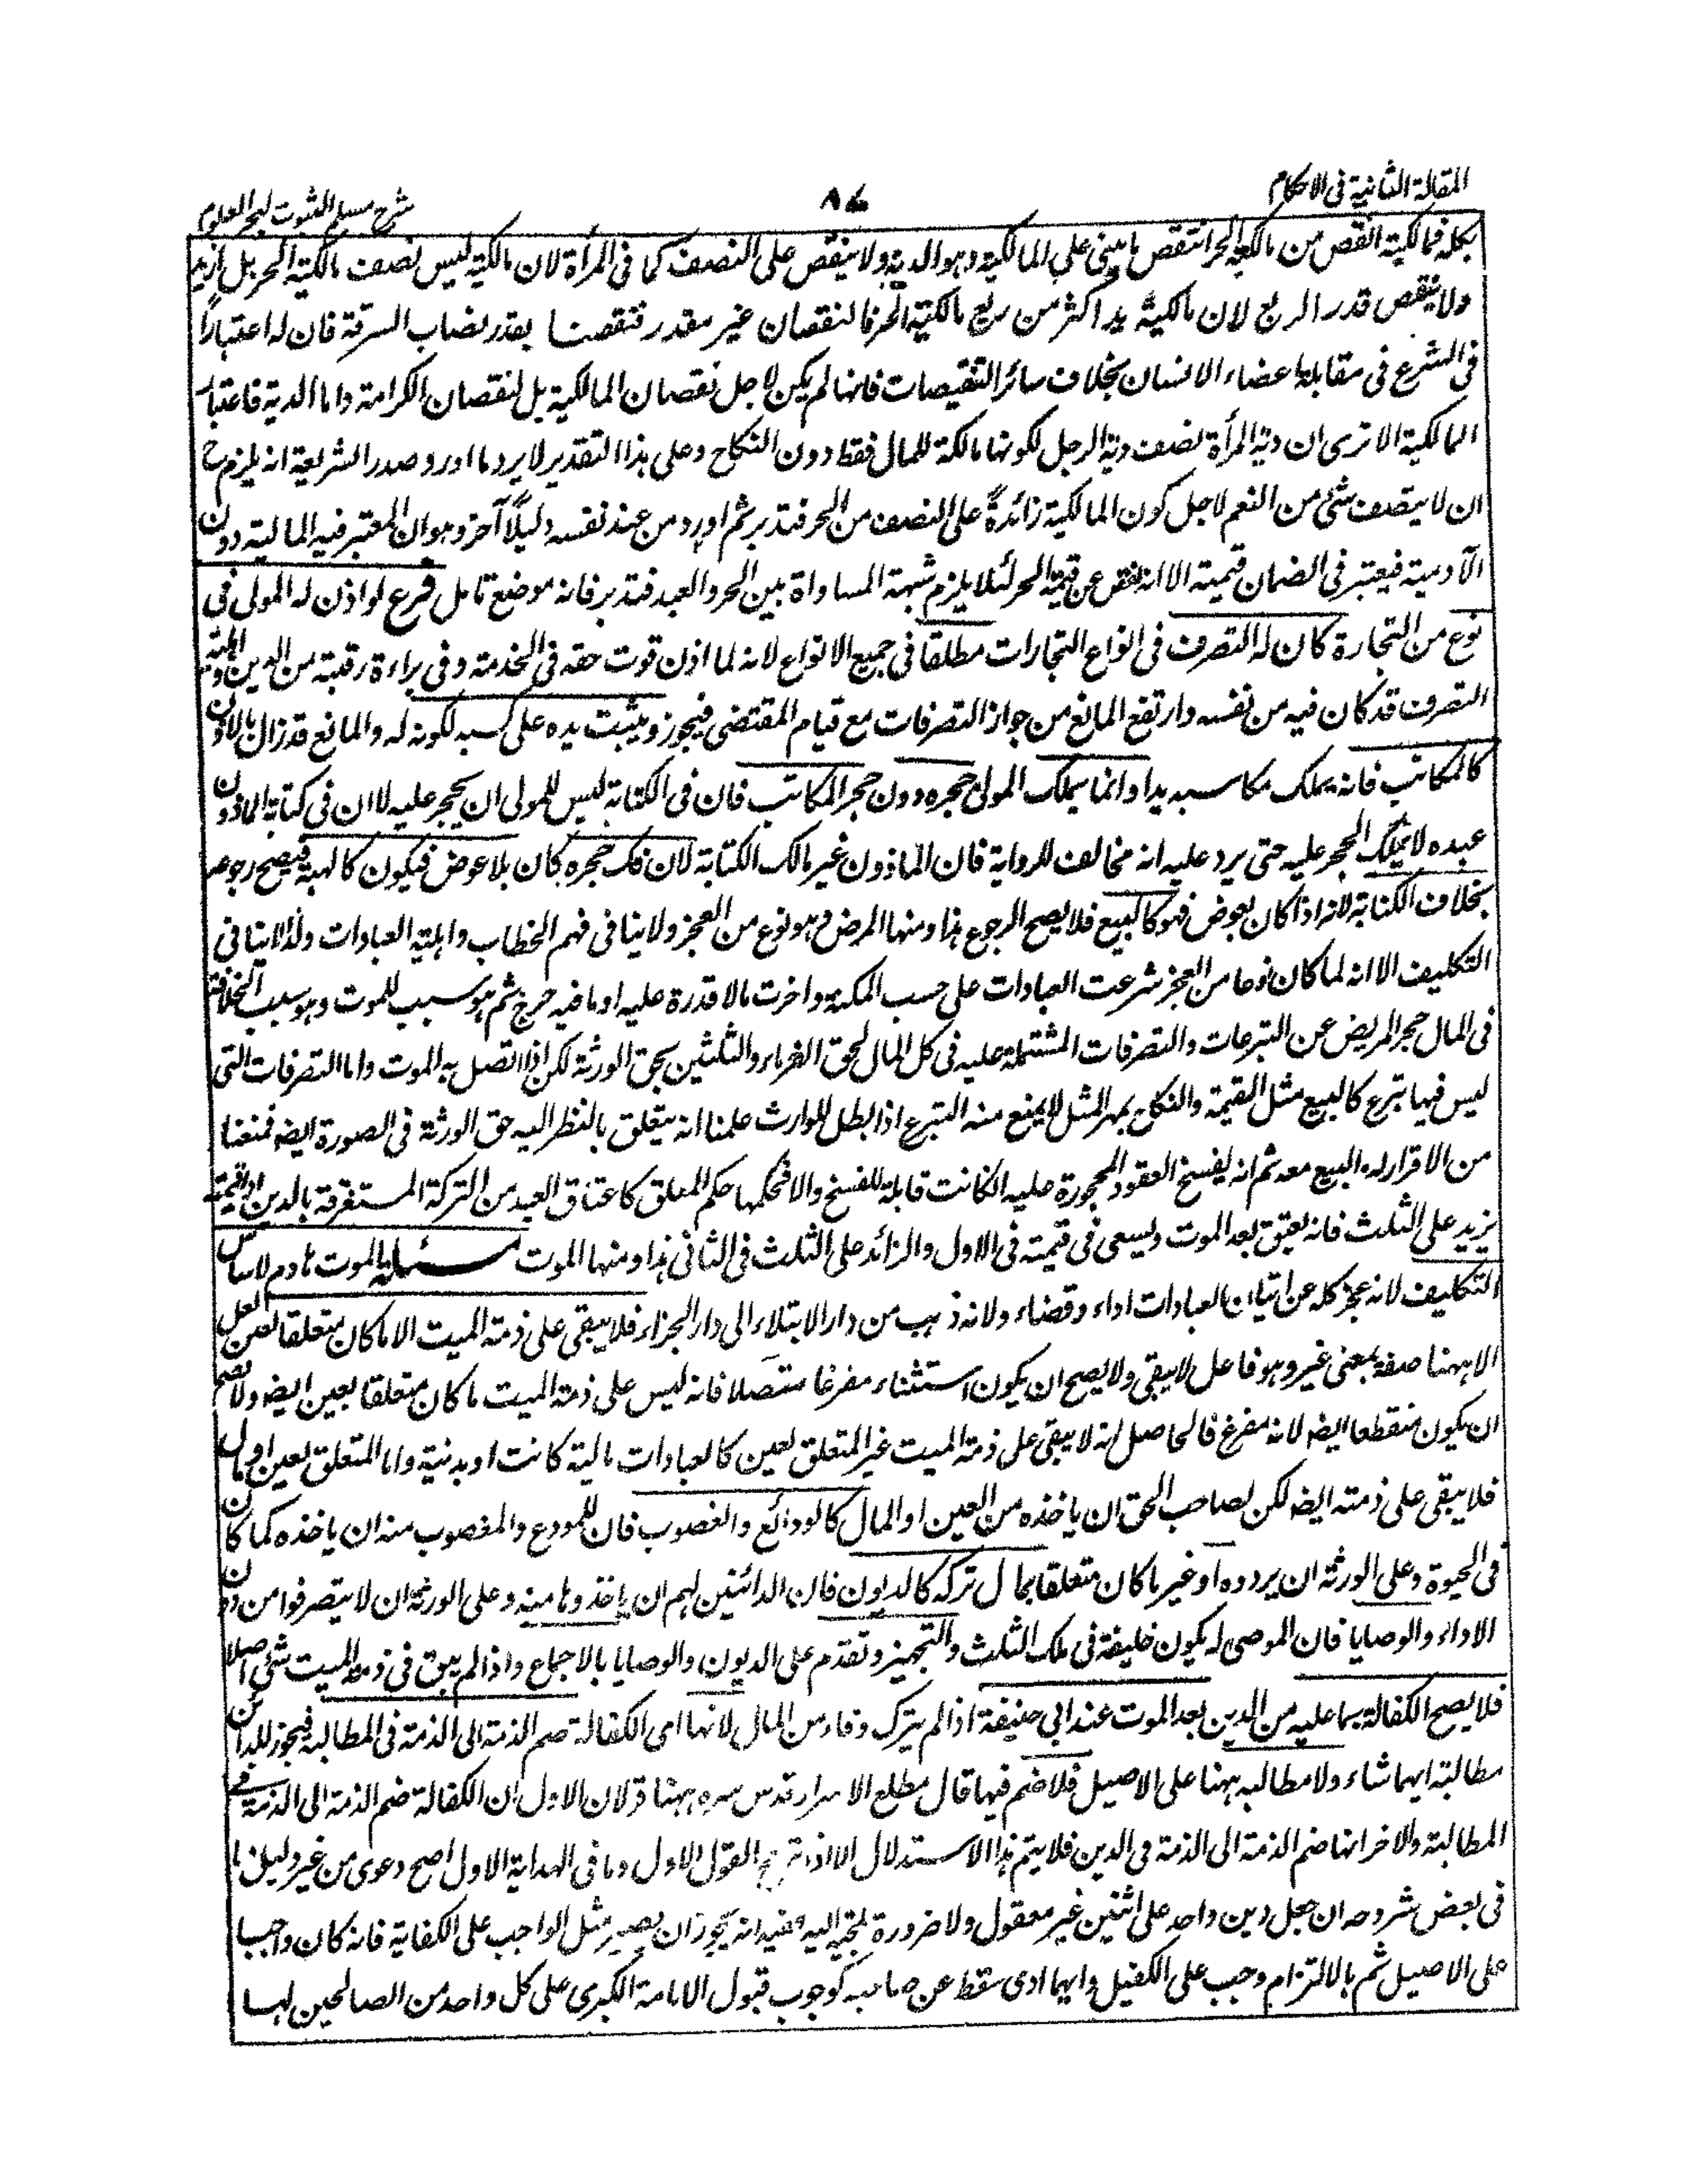 المقالة الثانية فى الاحكام
٨٦
شرح مسلم الثبوت لبحر العلوم
بكله فمالكيته انقص من مالكية الحر انتقص ما يبنى على المالكية وهو الدية ولا ينقص على النصف كما فى المرأة لان مالكيته ليس نصف مالكية الحر بل ازيد
ولا ينقص قدر الربع لان مالكيته يدا اكثر من ربع مالكية الحر فالنقصان غير مقدر فنقصنا بقدر نصاب السرقة فان له اعتبارًا
فى الشرع فى مقابلة اعضاء الانسان بخلاف سائر التنقيصات فانها لم يكن لاجل نقصان المالكية بل لنقصان الكرامة واما الدية فاعتبار
المالكية الا ترى ان دية المرأة نصف دية الرجل لكونها مالكة للمال فقط دون النكاح وعلى هذا التقدير لا يرد ما اورد صدر الشريعة انه يلزم ح
ان لا يتصف شئ من النعم لاجل كون المالكية زائدةً على النصف من الحر فتدبر ثم اورد من عند نفسه دليلًا آخر وهو ان المعتبر فيه المالية دون
الآدمية فيعتبر فى الضمان قيمته الا انه نقص عن قيمة الحر لئلا يلزم شبهة المساواة بين الحر والعبد فتدبر فانه موضع تامل فرع لو اذن له المولى فى
نوع من التجارة كان له التصرف فى انواع التجارات مطلقا فى جميع الانواع لانه لما اذن فوت حقه فى الخدمة وفى براءة رقبته من الدين واهلية
التصرف قد كان فيه من نفسه وارتفع المانع من جواز التصرفات مع قيام المقتضى فيجوز ويثبت يده على كسبه لكونه له والمانع قد زال بالاذن
كالمكاتب فانه يملك مكاسبه يدا وانما يملك المولى حجره دون حجر المكاتب فان فى الكتابة ليس للمولى ان يحجر عليه لا ان فى كتابة الماذون
عبده لا يملك الحجر عليه حتى يرد عليه انه مخالف للرواية فان الماذون غير مالك الكتابة لان فك حجره كان بلا عوض فيكون كالهبة فيصح رجوعه
بخلاف الكتابة لانه اذا كان بعوض فهو كالبيع فلا يصح الرجوع هذا ومنها المرض وهو نوع من العجز ولا ينافى فهم الخطاب واهلية العبادات ولذا لا ينافى
التكليف الا انه لما كان نوعا من العجز شرعت العبادات على حسب المكنة واخرت ما لا قدرة عليه او ما فيه حرج ثم هو سبب للموت وهو سبب الخلافة
فى المال حجر المريض عن التبرعات والتصرفات المشتملة عليه فى كل المال لحق الغرماء والثلثين بحق الورثة لكن اذا اتصل به الموت واما التصرفات التى
ليس فيها تبرع كالبيع مثل القيمة والنكاح بمهر المثل لا يمنع منه التبرع اذا بطل للوارث علمنا انه يتعلق بالنظر اليه حق الورثة فى الصورة ايضا فمنعنا
من الاقرار له والبيع معه ثم انه يفسخ العقود المحجورة عليه ان كانت قابلة للفسخ والا فحكمها حكم المعلق كاعتاق العبد من التركة المستغرقة بالدين او قيمته
يزيد على الثلث فانه يعتق بعد الموت ويسعى فى قيمته فى الاول والزائد على الثلث فى الثانى هذا ومنها الموت مسئلة الموت هادم لاساس
التكليف لانه عجز كله عن اتيان العبادات اداء وقضاء ولانه ذهب من دار الابتلاء الى دار الجزاء فلا يبقى على ذمة الميت الا ما كان متعلقا بعين لعل
الا ههنا صفة بمعنى غير وهو فاعل لا يبقى ولا يصح ان يكون استثناء مفرغا متصلا فانه ليس على ذمة الميت ما كان متعلقا بعين ايضا ولا يصح
ان يكون منقطعا ايضا لانه مفرغ فالحاصل انه لا يبقى على ذمة الميت غير المتعلق بعين كالعبادات مالية كانت او بدنية واما المتعلق بعين او مال
فلا يبقى على ذمته ايضا لكن لصاحب الحق ان ياخذه من العين او المال كالودائع والغصوب فان للمودع والمغصوب منه ان ياخذه كما كان
فى الحيوة وعلى الورثة ان يردوه او غير ما كان متعلقا بمال تركه كالديون فان الدائنين لهم ان ياخذوها منه وعلى الورثة ان لا يتصرفوا من دون
الاداء والوصايا فان الموصى له يكون خليفة فى ملك الثلث والتجهيز وتقدم على الديون والوصايا بالاجماع واذا لم يبق فى ذمة الميت شئ اصلا
فلا يصح الكفالة بما عليه من الدين بعد الموت عند ابى حنيفة اذا لم يترك وفاء من المال لانها اى الكفالة ضم الذمة الى الذمة فى المطالبة فيجوز للدائن
مطالبة ايهما شاء ولا مطالبة ههنا على الاصيل فلا ضم فيها قال مطلع الاسرار قدس سره ههنا قولان الاول ان الكفالة ضم الذمة الى الذمة فى
المطالبة والاخر انها ضم الذمة الى الذمة فى الدين فلا يتم هذا الاستدلال الا اذا القول الاول وما فى الهداية الاول اصح دعوى من غير دليل ما
فى بعض شروحه ان جعل دين واحد على اثنين غير معقول ولا ضرورة ملجئة اليه ففيه انه يجوز ان يصير مثل الواجب على الكفاية فانه كان واجبا
على الاصيل ثم بالالتزام وجب على الكفيل وايهما ادى سقط عن صاحبه كوجوب قبول الامامة الكبرى على كل واحد من الصالحين لها